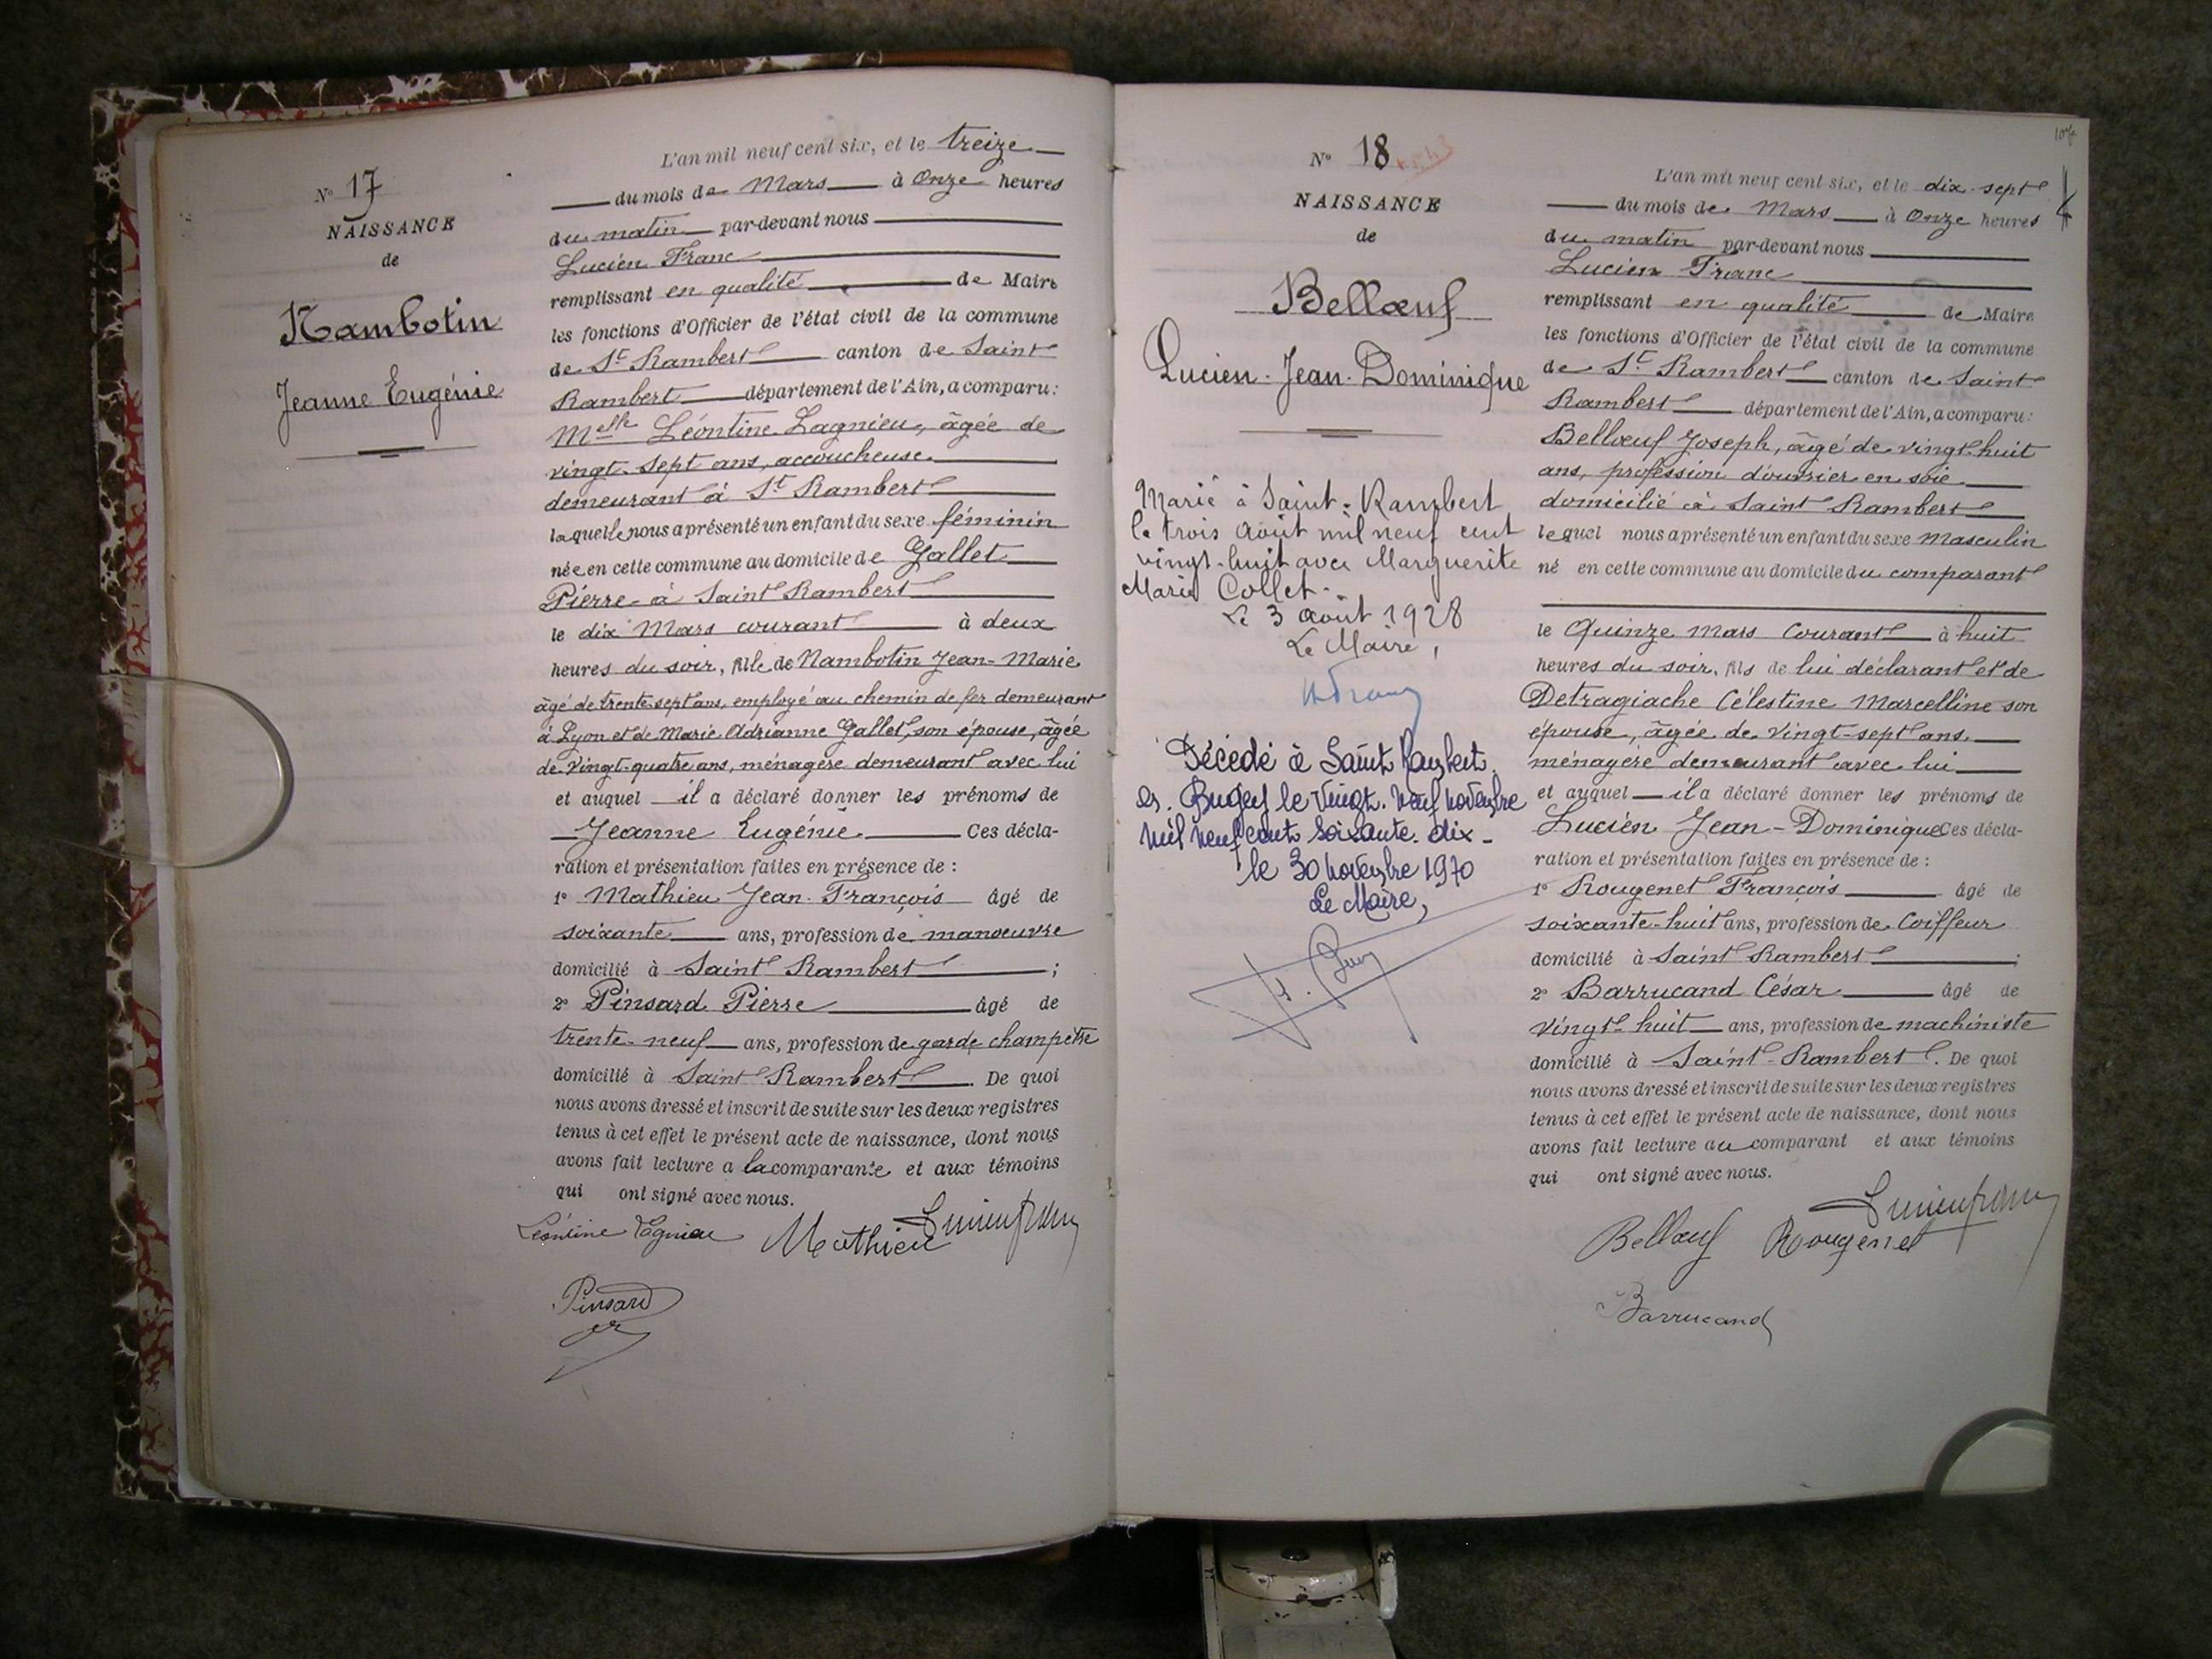 N° 17
NAISSANCE
de
Nambotin
Jeanne Eugénie
L'an mil neuf cent six, et le treize
du mois de Mars à Onze heures
du matin par-devant nous
Lucien Franc
remplissant en qualité de Maire
les fonctions d'Officier de l'état civil de la commune
de St Rambert canton de Saint
Rambert département de l'Ain, a comparu:
Melle Léontine Lagnieu, âgée de
vingt-sept ans, accoucheuse
demeurant à St Rambert
laquelle nous a présenté un enfant du sexe féminin
née en cette commune au domicile de Gallet
Pierre à Saint Rambert
le dix Mars courant à deux
heures du soir, fille de Nambotin Jean-Marie
âgé de trente-sept ans, employé au chemin de fer demeurant
à Lyon et de Marie Adrianne Gallet, son épouse, âgée
de Vingt-quatre ans, ménagère demeurant avec lui
et auquel il a déclaré donner les prénoms de
Jeanne Eugénie Ces décla-
ration et présentation faites en présence de :
1° Mathieu Jean François âgé de
soixante ans, profession de manoeuvre
domicilié à Saint Rambert ;
2° Pinsard Pierre âgé de
trente-neuf ans, profession de garde champêtre
domicilié à Saint Rambert. De quoi
nous avons dressé et inscrit de suite sur les deux registres
tenus à cet effet le présent acte de naissance, dont nous
avons fait lecture a la comparante et aux témoins
qui ont signé avec nous.
Léontine Lagnieu Mathieu Lucien Franc
Pinsard
N° 18
NAISSANCE
de
Bellœuf
Lucien-Jean-Dominique
Marié à Saint-Rambert
le trois Août mil neuf cent
vingt-huit avec Marguerite
Marie Collet.
Le 3 août 1928
Le Maire,
Décédé à Saint Rambert
en Bugey le Vingt-Neuf novembre
mil neuf cent soixante-dix -
le 30 novembre 1970
Le Maire,
L'an mil neuf cent six, et le dix-sept
du mois de Mars à Onze heures
du matin par-devant nous
Lucien Franc
remplissant en qualité de Maire
les fonctions d'Officier de l'état civil de la commune
de St Rambert canton de Saint
Rambert département de l'Ain, a comparu:
Bellœuf Joseph, âgé de vingt-huit
ans, profession d'ouvrier en soie
domicilié à Saint Rambert
lequel nous a présenté un enfant du sexe Masculin
né en cette commune au domicile du comparant
le Quinze Mars Courant à huit
heures du soir, fils de lui déclarant et de
Detragiache Célestine Marcelline son
épouse, âgée de Vingt-sept ans,
ménagère demeurant avec lui
et auquel il a déclaré donner les prénoms de
Lucien Jean-Dominique Ces décla-
ration et présentation faites en présence de :
1° Rougenet François âgé de
soixante-huit ans, profession de Coiffeur
domicilié à Saint Rambert ;
2° Barrucand César âgé de
Vingt-huit ans, profession de machiniste
domicilié à Saint-Rambert. De quoi
nous avons dressé et inscrit de suite sur les deux registres
tenus à cet effet le présent acte de naissance, dont nous
avons fait lecture au comparant et aux témoins
qui ont signé avec nous.
Bellœuf Rougenet Lucien Franc
Barrucand